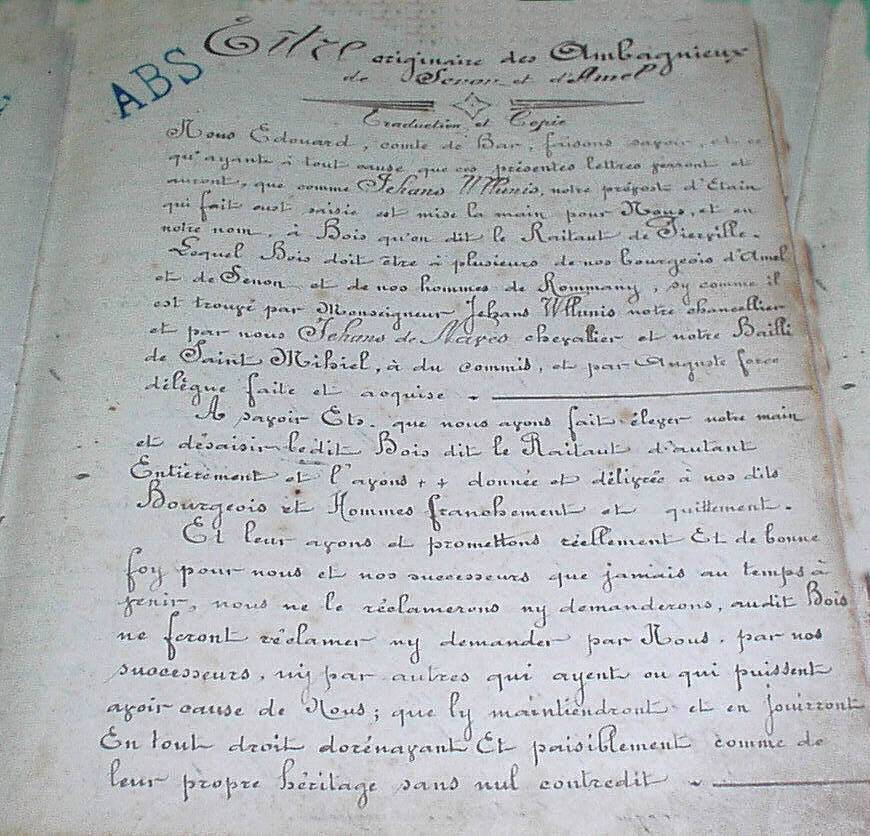 ABS
Titre originaire des Ambagnieux
de Senon et d'Amel
Traduction et Copie
Nous Edouard, comte de Bar, faisons savoir, et ce
qu'ayants à tout cause que ces présentes lettres verront et
auront, que comme Jehans Wllunis, notre prévost d'Etain
qui fait eust saisie est mise la main pour Nous, et en
notre nom, à Bois qu'on dit le Raitaut de Pierville.
Lequel Bois doit être à plusieurs de nos bourgeois d'Amel
et de Senon et de nos hommes de Rommany, sy comme il
est trouvé par Monseigneur Jehans Wllunis notre chancellier
et par nous Jehans de chevallier et notre Bailli
de Saint Mihiel, à du commis, et par Auguste force
délègue faite et acquise
A savoir Ets. que nous avons fait élever notre main
et désaisir ledit Bois dit le Raitaut d'autant
Entièrement et l'avons + + donnée et délivrée à nos dits
Bourgeois et Hommes franchement et quittement.
Et leur avons et promettons réellement Et de bonne
foy pour nous et nos successeurs que jamais au temps à
venir, nous ne le réclamerons ny demanderons, audit Bois
ne feront réclamer ny demander par Nous, par nos
successeurs, ny par autres qui ayent ou qui puissent
avoir cause de Nous; que ly maintiendront et en jouirront
En tout droit dorénavant Et paisiblement comme de
leur propre héritage sans nul contredit